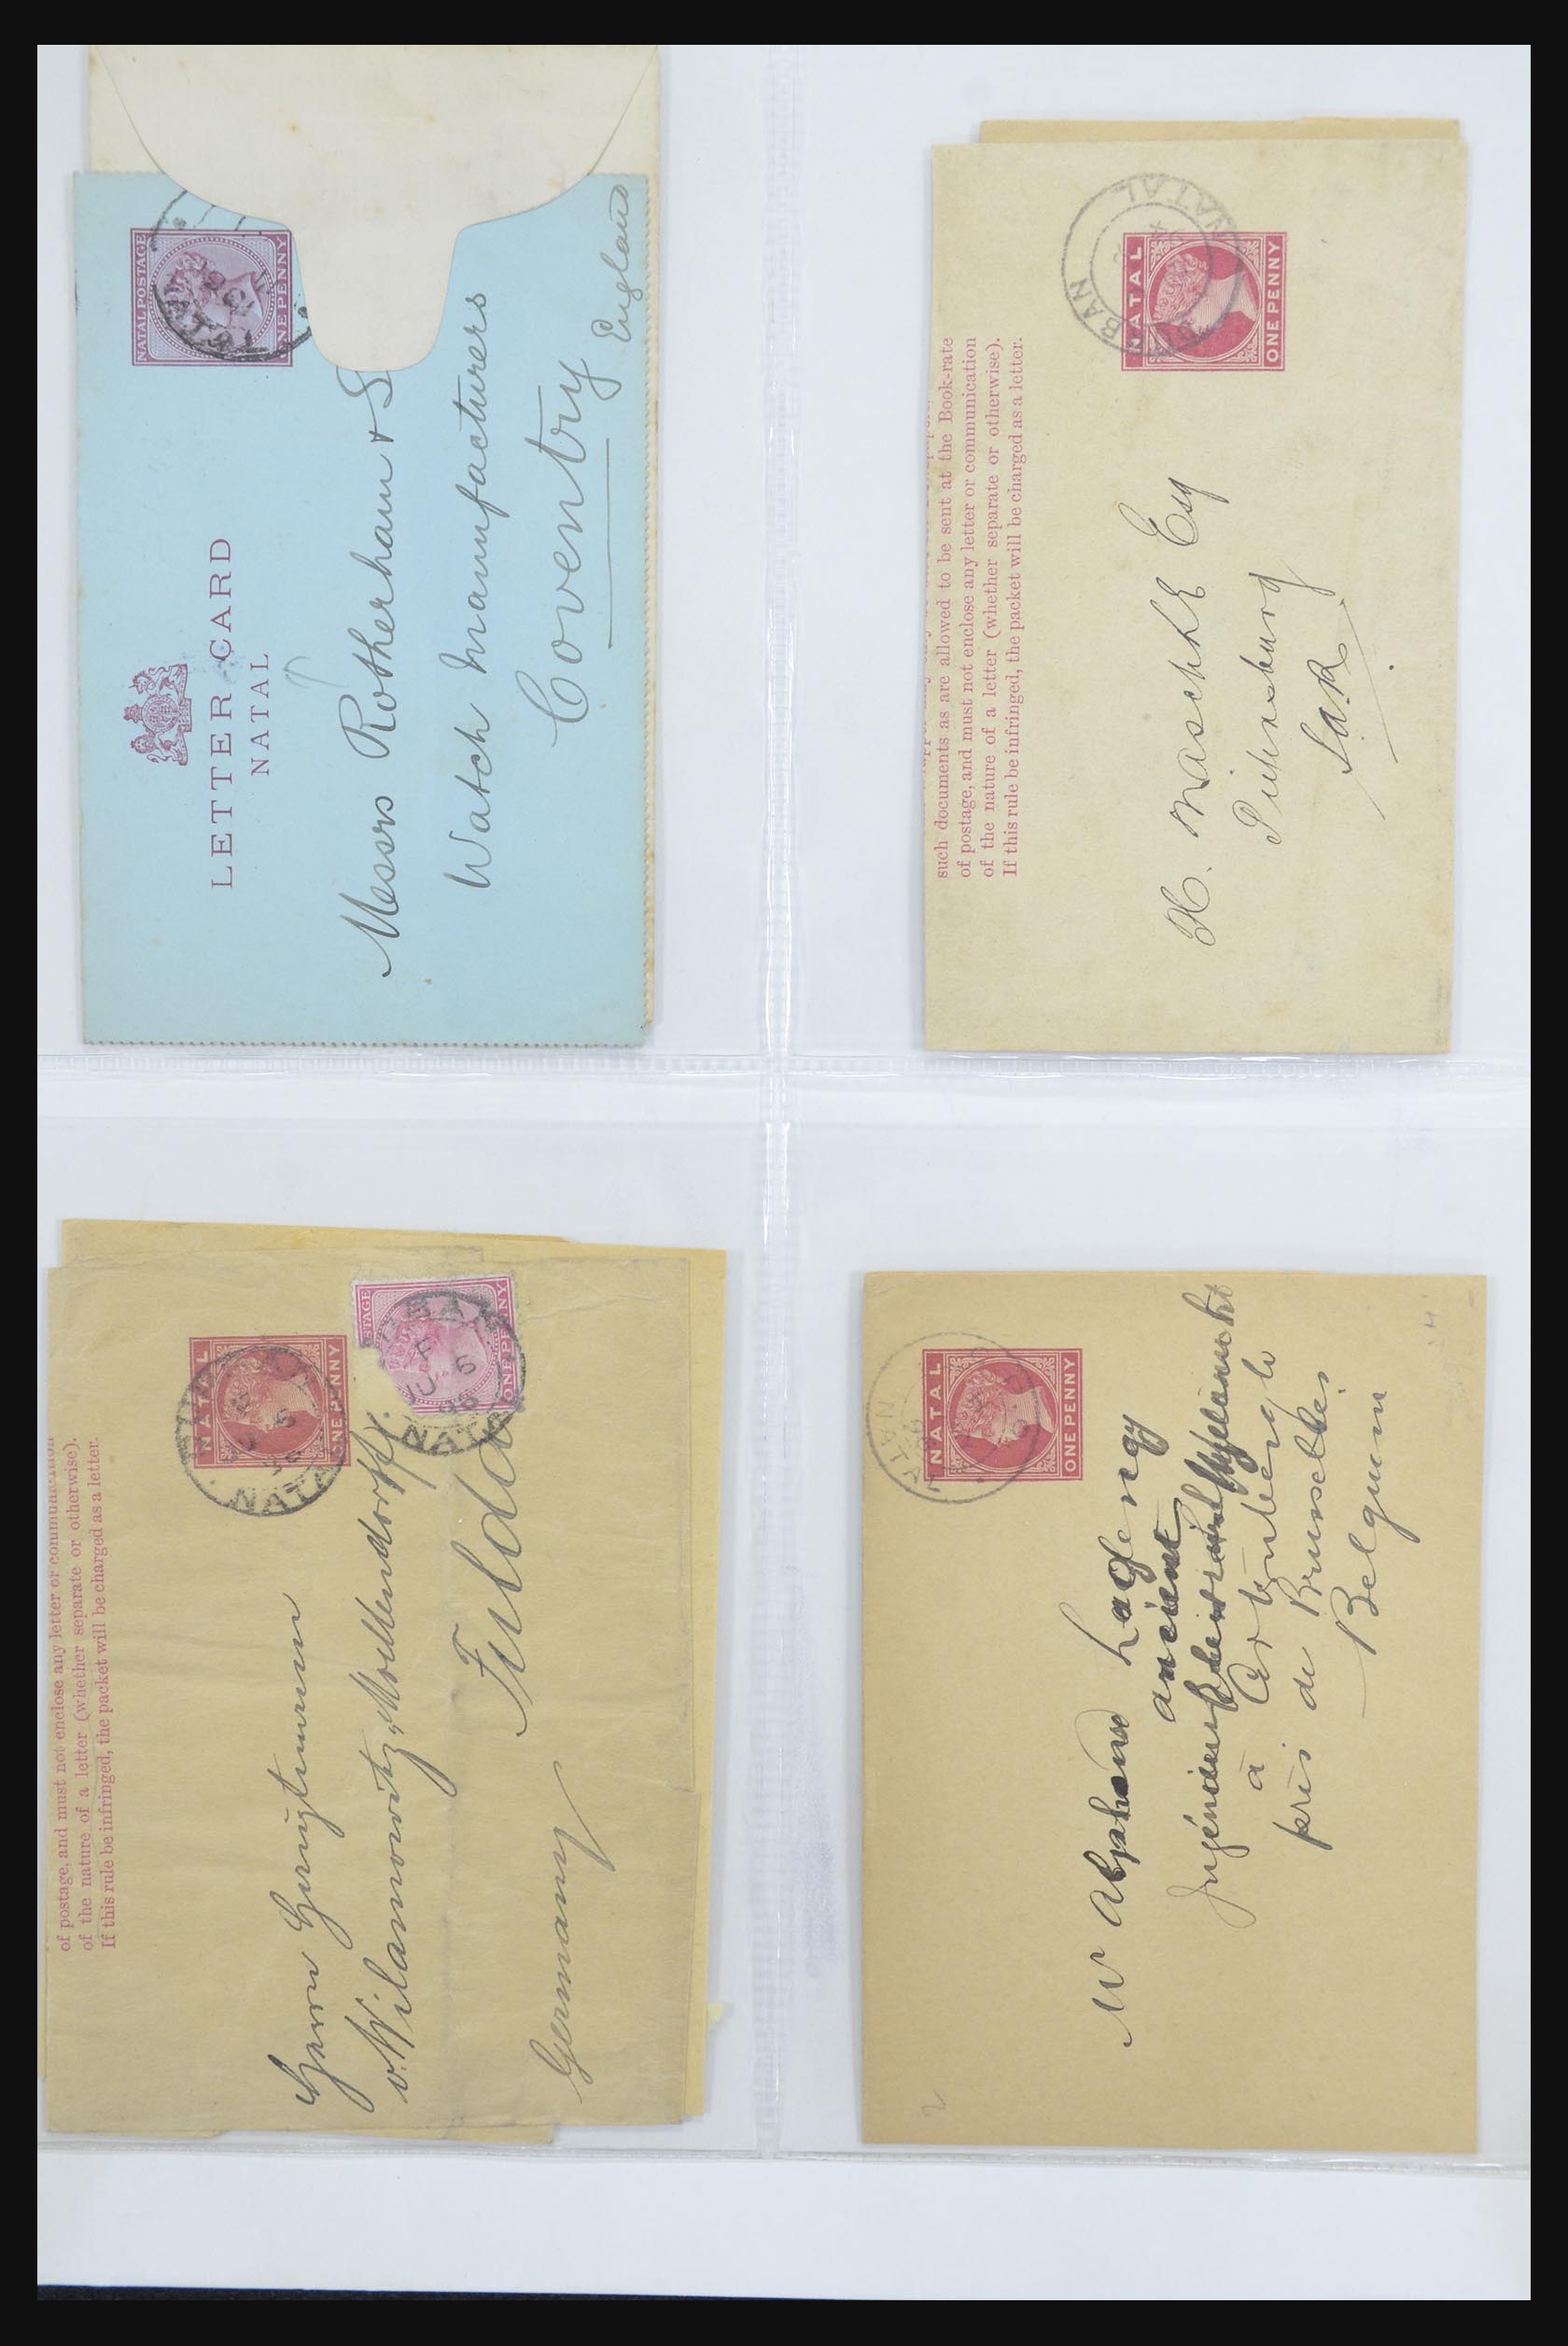 NATAL POSTAGE
ONE PENNY
LETTER CARD
NATAL
Messrs Rotherham & S
Watch Manufacturers
Coventry
England
such documents as are allowed to be sent at the Book-rate
of postage, and must not enclose any letter or communication
of the nature of a letter (whether separate or otherwise).
If this rule be infringed, the packet will be charged as a letter.
NATAL
ONE PENNY
BAN
NATAL
H. Maschke Esq
of postage, and must not enclose any letter or communication
of the nature of a letter (whether separate or otherwise).
If this rule be infringed, the packet will be charged as a letter.
NATAL
ONE PENNY
NATA
TAGE
ONE PENNY
BAN
F
JU 6
96
NATA
Herrn
v. Wilamowitz, Moellendorff.
Fulda
Germany
NATAL
ONE PENNY
Mr Abraham
ancient
à
près de Bruxelles
Belgium